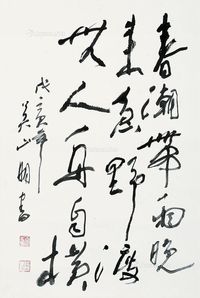 春潮帶雨晚
来急野渡
無人舟自横
戊寅年
吴山明書